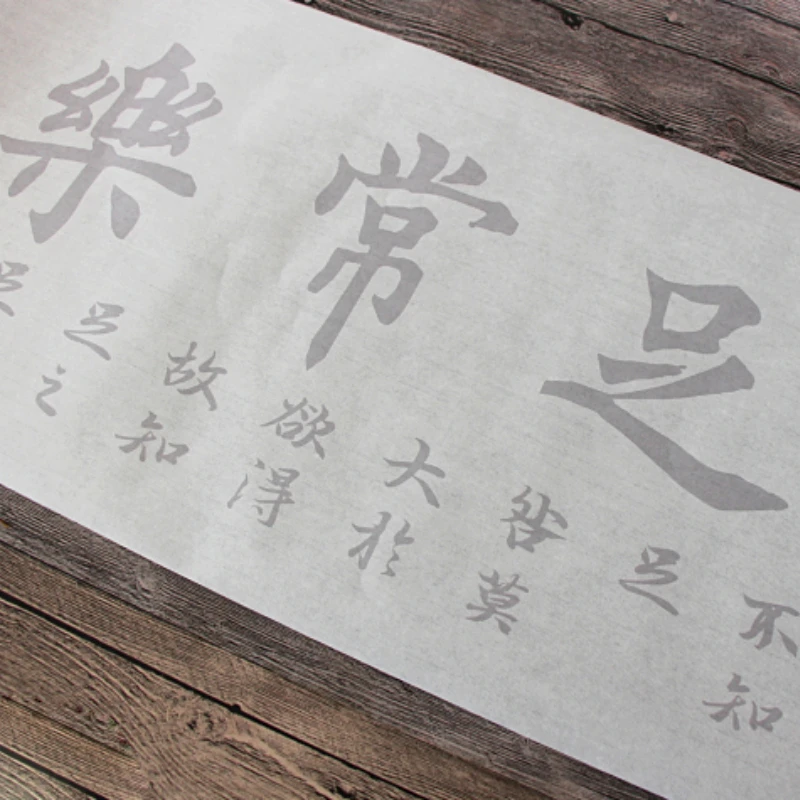 足常樂
不知
足
咎莫
大於
欲得
故知
足之
足